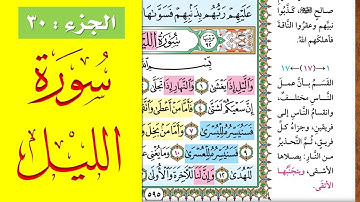 الجزء : ٣٠
سُورَة
الليل
عَلَيْهِمْ رَبُّهُم بِذَنۢبِهِمْ فَسَوَّىٰهَا
سُورَةُ الليل
وَٱلَّيْلِ إِذَا يَغْشَىٰ ١ وَٱلنَّهَارِ إِذَا تَجَلَّىٰ
إِنَّ سَعْيَكُمْ لَشَتَّىٰ ٤ فَأَمَّا مَنْ أَعْطَىٰ
فَسَنُيَسِّرُهُۥ لِلْيُسْرَىٰ ٧ وَأَمَّا مَنۢ بَخِلَ
فَسَنُيَسِّرُهُۥ لِلْعُسْرَىٰ ١٠ وَمَا يُغْنِى
لَلْهُدَىٰ ١٢ وَإِنَّ لَنَا لَلْـَٔاخِرَةَ وَٱلْأُولَىٰ
٥٩٥
صالح ﷺ، كذَّبُوا
نبيَّهم وعقَرُوا النَّاقةَ
فأهلكَهم اللهُ.
١ ← (١٧) ← ١٧
القَسَمُ بأنَّ عملَ
النَّاسِ مختلفٌ،
وانقسامُ النَّاسِ إلى
فريقينِ، وجزاءُ كلِّ
فريقٍ، ثُمَّ التَّحذيرُ
من النَّارِ: يصلاها
الأشقى، ويتجنَّبُها
الأتقى.